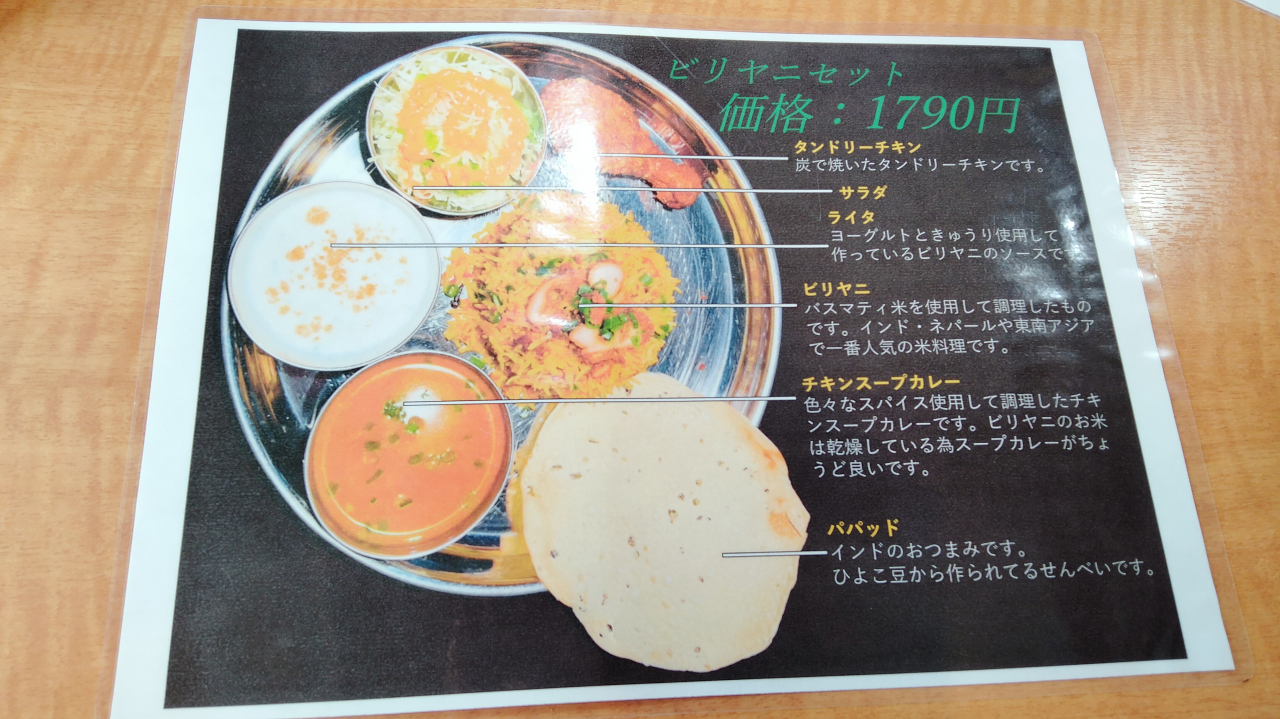 ビリヤニセット
価格：1790円
タンドリーチキン
炭で焼いたタンドリーチキンです。
サラダ
ライタ
ヨーグルトときゅうり使用して
作っているビリヤニのソースで
ビリヤニ
バスマティ米を使用して調理したもの
です。インド・ネパールや東南アジア
で一番人気の米料理です。
チキンスープカレー
色々なスパイス使用して調理したチキ
ンスープカレーです。ビリヤニのお米
は乾燥している為スープカレーがちょ
うど良いです。
パパッド
インドのおつまみです。
ひよこ豆から作られてるせんべいです。